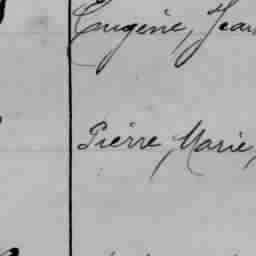 Eugène, Jean
Pierre, Marie,